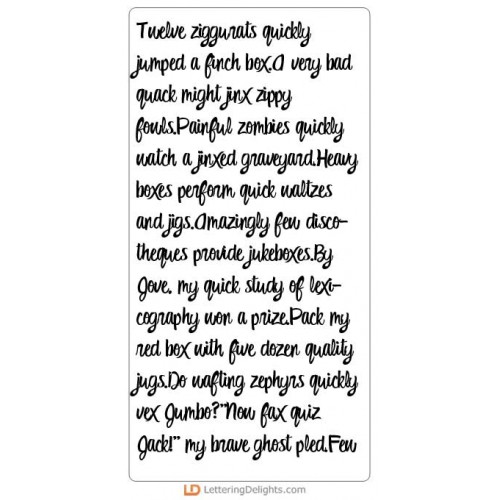 Twelve ziggurats quickly
jumped a finch box.A very bad
quack might jinx zippy
fowls.Painful zombies quickly
watch a jinxed graveyard.Heavy
boxes perform quick waltzes
and jigs.Amazingly few disco-
theques provide jukeboxes.By
Jove, my quick study of lexi-
cography won a prize.Pack my
red box with five dozen quality
jugs.Do wafting zephyrs quickly
vex Jumbo?"Now fax quiz
Jack!" my brave ghost pled.Few
LD LetteringDelights.com